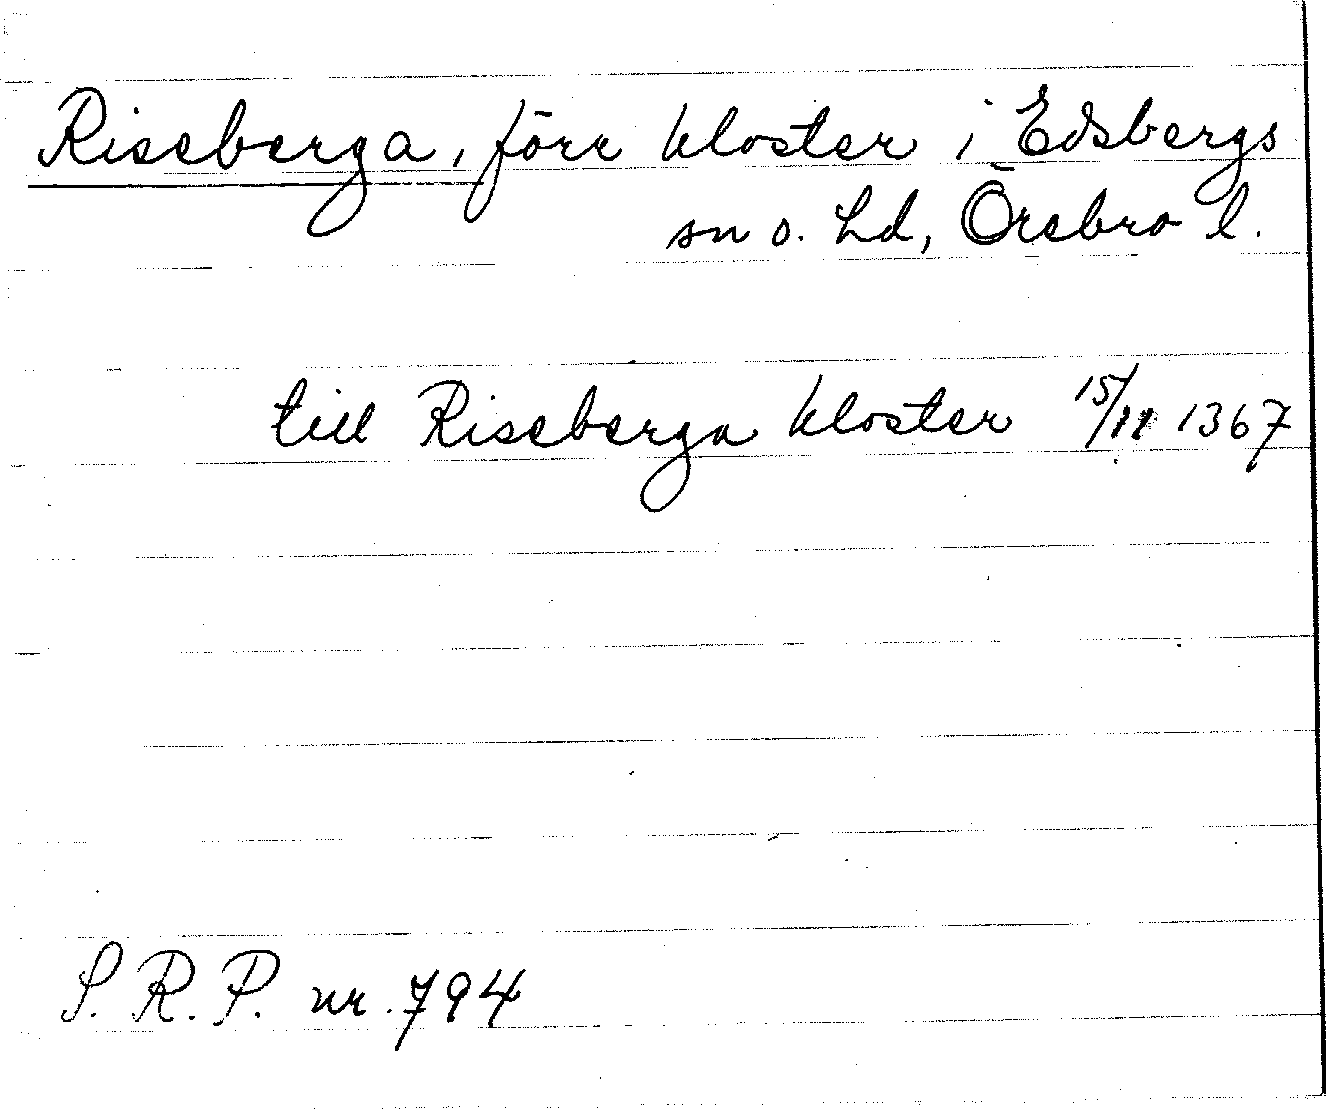 Riseberga, förr kloster i Edsbergs
sn o. hd, Örebro l.
till Riseberga kloster 15/11 1367
S. R. P. nr. 794